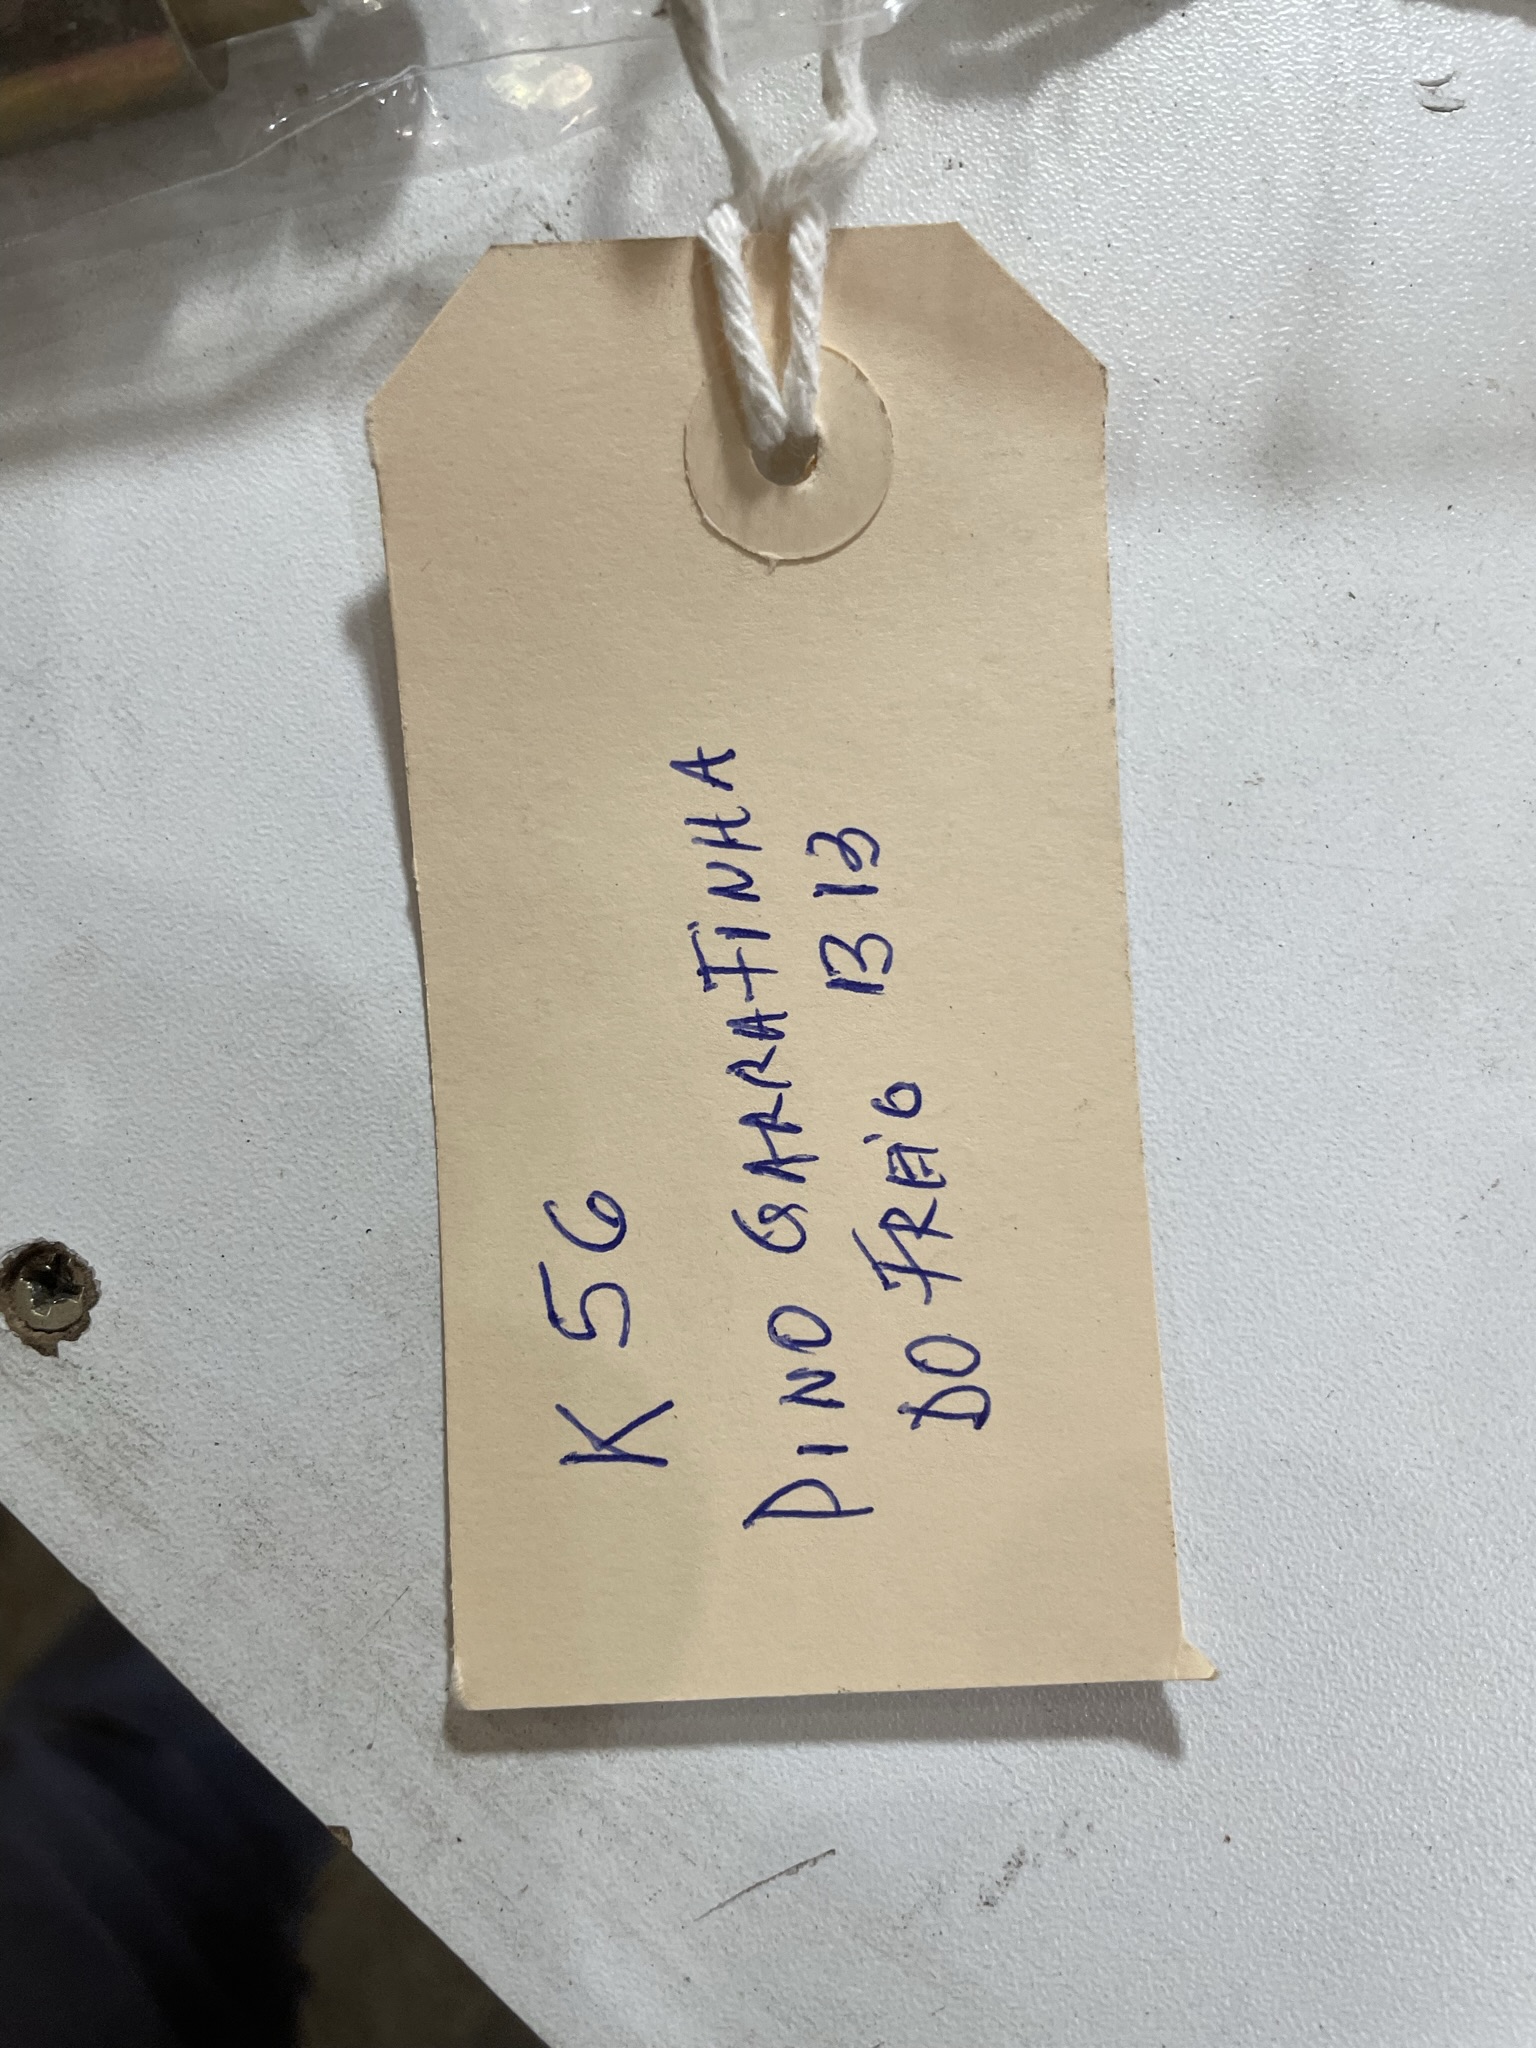 K 56
PINO GARRATINHA
DO FREiO 1313